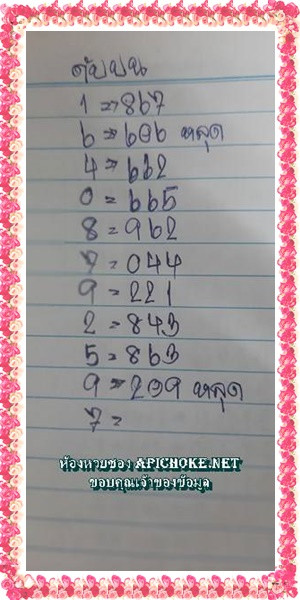 ดับบน
1 => 867
6 => 696 หลุด
4 => 662
0 = 665
8 = 962
7 = 044
9 = 221
2 = 843
5 = 863
9 => 209 หลุด
7 =
ห้องหวยซอง APICHOKE.NET
ขอบคุณเจ้าของข้อมูล